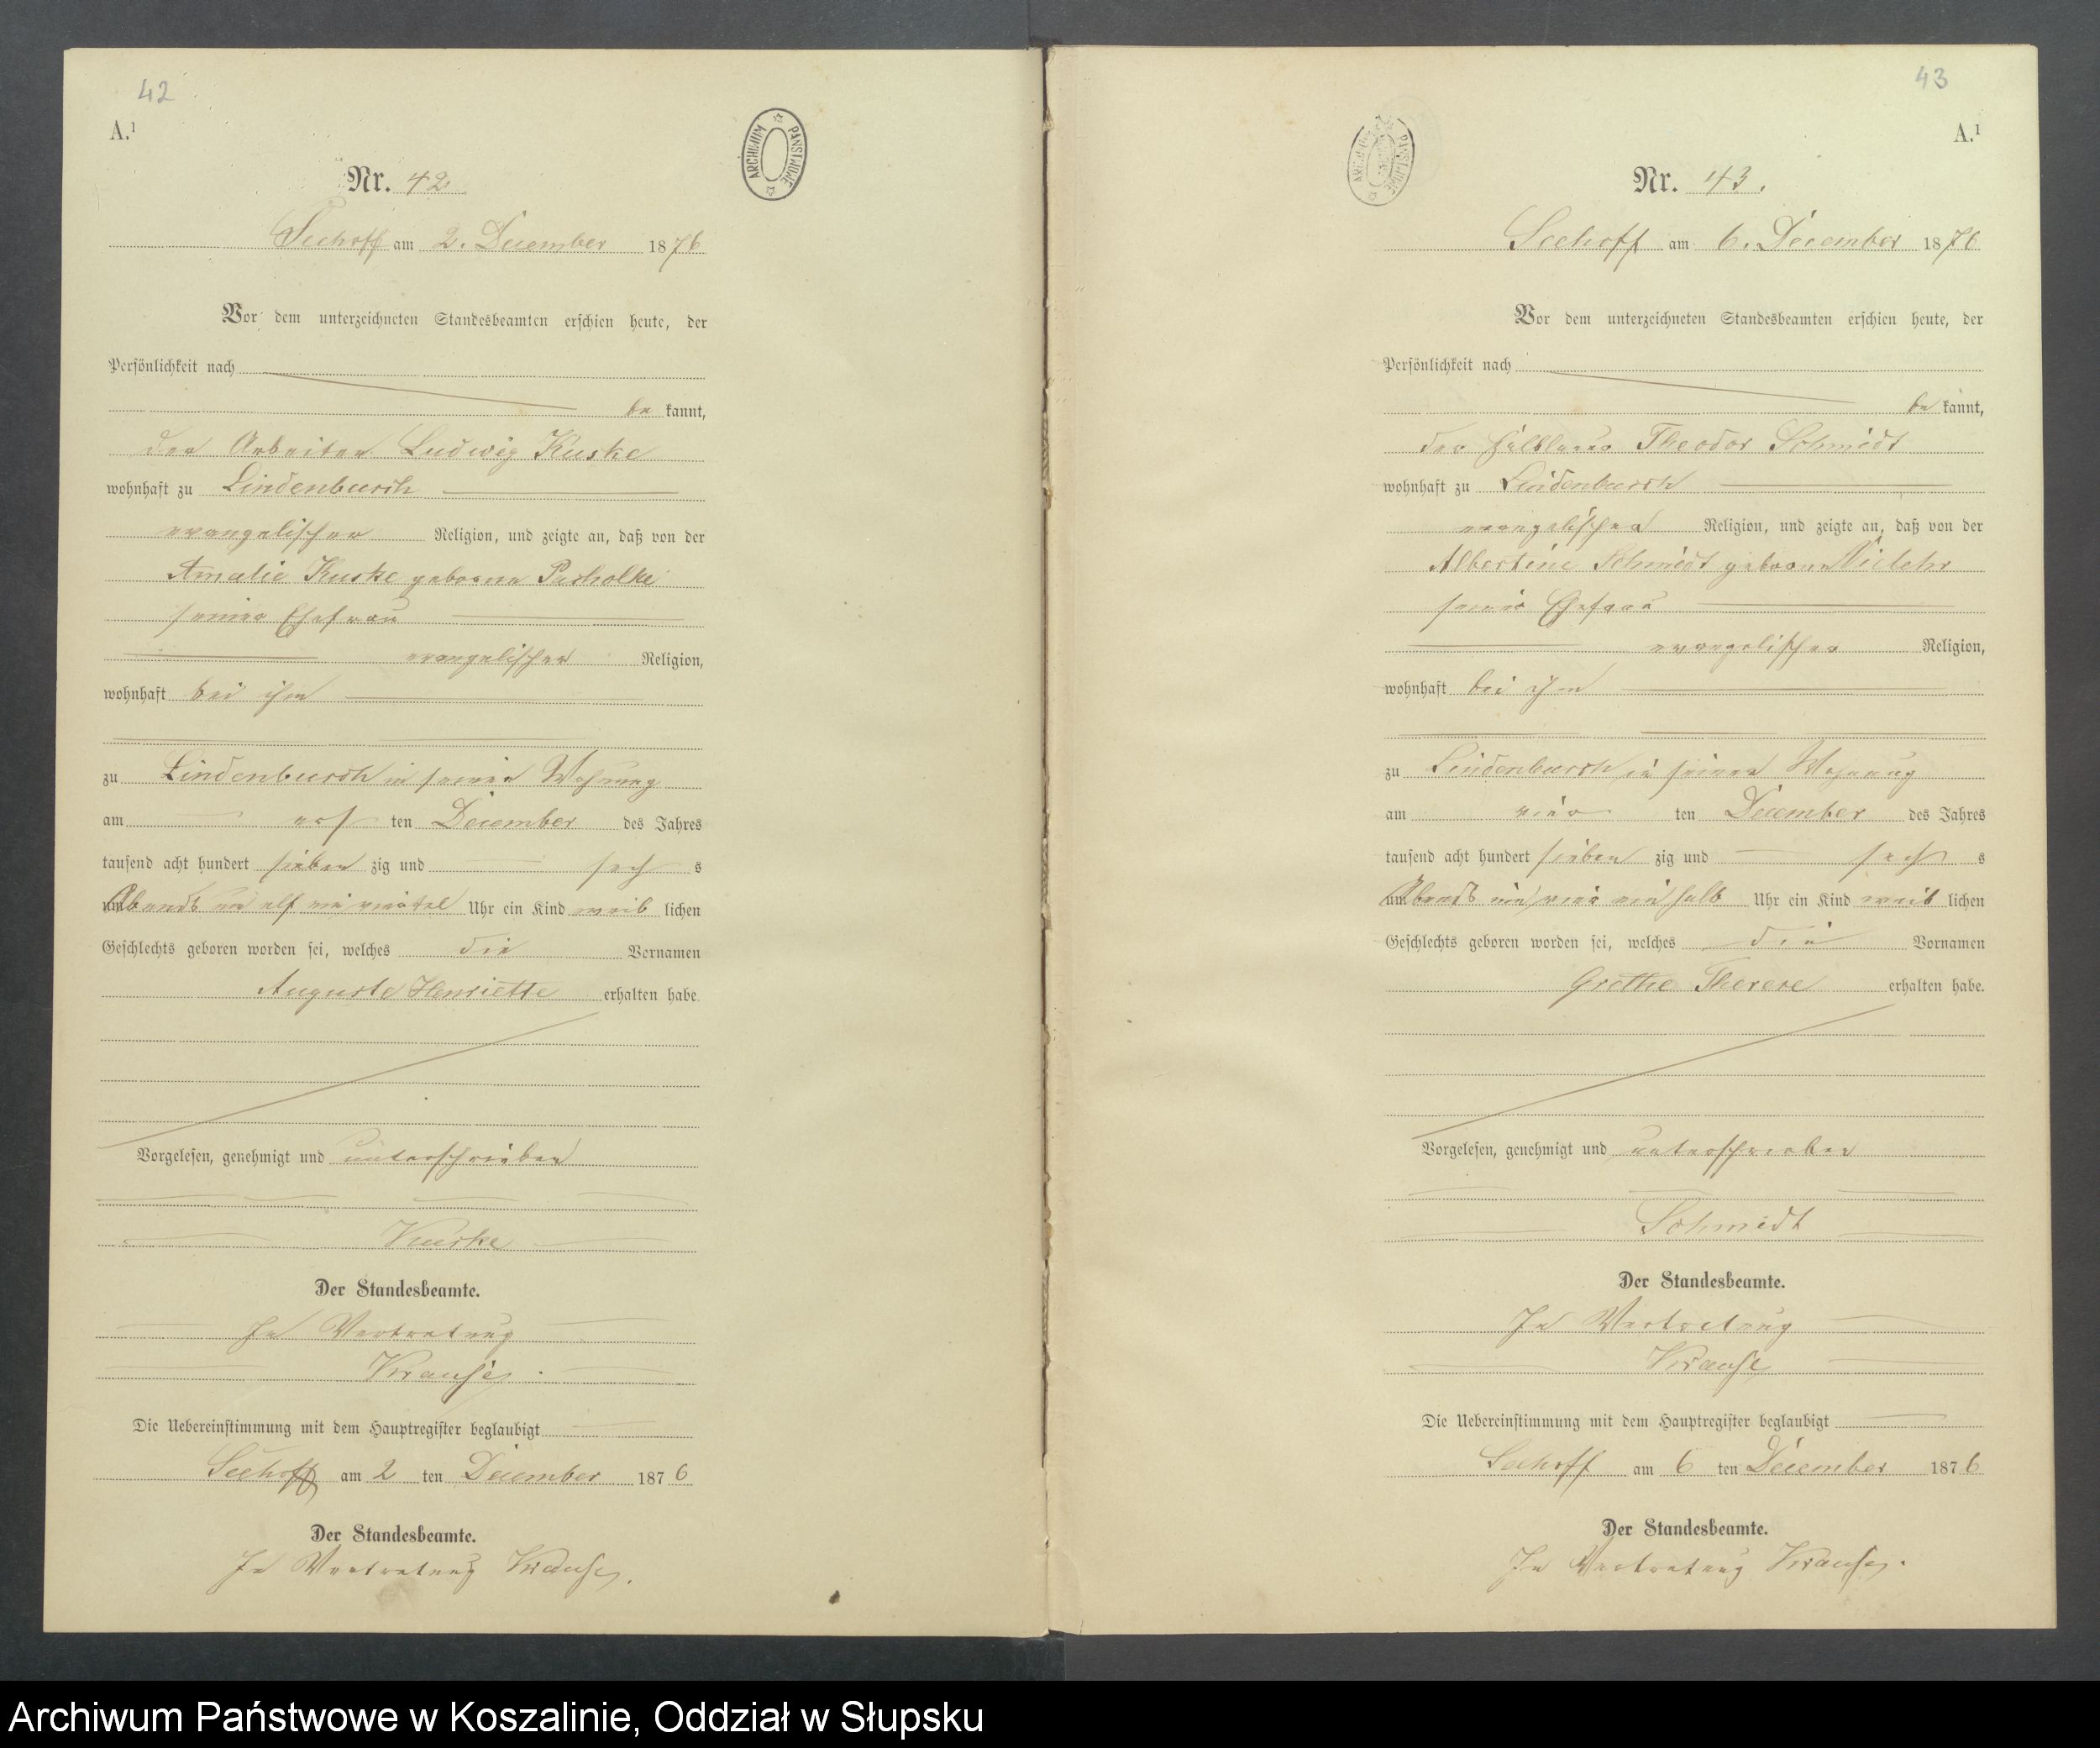 42
A.¹
ARCHIWUM PAŃSTWOWE
Nr. 42.
Seehoff am 2. December 1876
Vor dem unterzeichneten Standesbeamten erschien heute, der
Persönlichkeit nach
be kannt,
der Arbeiter Ludwig Kuske
wohnhaft zu Lindenbusch
evangelischer Religion, und zeigte an, daß von der
Amalie Kuske geborene Pasholke
seiner Ehefrau
evangelischer Religion,
wohnhaft bei ihm
zu Lindenbusch in seiner Wohnung
am ers ten December des Jahres
tausend acht hundert sieben zig und sech s
um Abends um elf ein viertel Uhr ein Kind weib lichen
Geschlechts geboren worden sei, welches die Vornamen
Auguste Henriette erhalten habe.
Vorgelesen, genehmigt und unterschrieben
Kuske
Der Standesbeamte.
In Vertretung
Krause.
Die Uebereinstimmung mit dem Hauptregister beglaubigt
Seehoff am 2 ten December 1876
Der Standesbeamte.
In Vertretung Krause.
43
A.¹
ARCHIWUM PAŃSTWOWE
Nr. 43.
Seehoff am 6. December 1876
Vor dem unterzeichneten Standesbeamten erschien heute, der
Persönlichkeit nach
be kannt,
der Theodor Schmidt
wohnhaft zu Lindenbusch
evangelischer Religion, und zeigte an, daß von der
Albertine Schmidt geborene Vielehr
seiner Ehefrau
evangelischer Religion,
wohnhaft bei ihm
zu Lindenbusch in seiner Wohnung
am vier ten December des Jahres
tausend acht hundert sieben zig und sech s
um Abends um vier ein halb Uhr ein Kind weib lichen
Geschlechts geboren worden sei, welches die Vornamen
Grethe Therese erhalten habe.
Vorgelesen, genehmigt und unterschrieben
Schmidt
Der Standesbeamte.
In Vertretung
Krause
Die Uebereinstimmung mit dem Hauptregister beglaubigt
Seehoff am 6 ten December 1876
Der Standesbeamte.
In Vertretung Krause.
Archiwum Państwowe w Koszalinie, Oddział w Słupsku